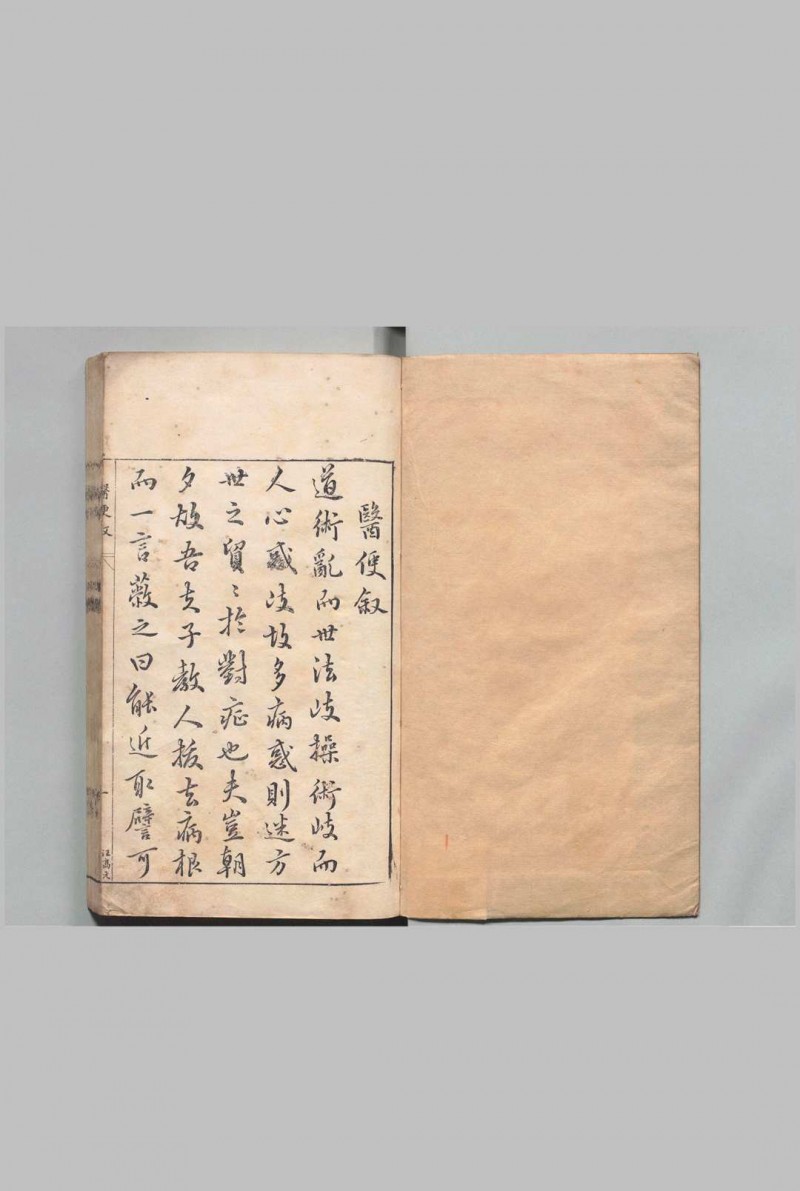 醫便叙
道術亂而世法岐操術岐而
人心惑岐故多病惑則迷方
世之貿〻於對症也夫豈朝
夕故吾夫子教人拔去病根
而一言蔽之曰能近取譬可
醫便叙
一